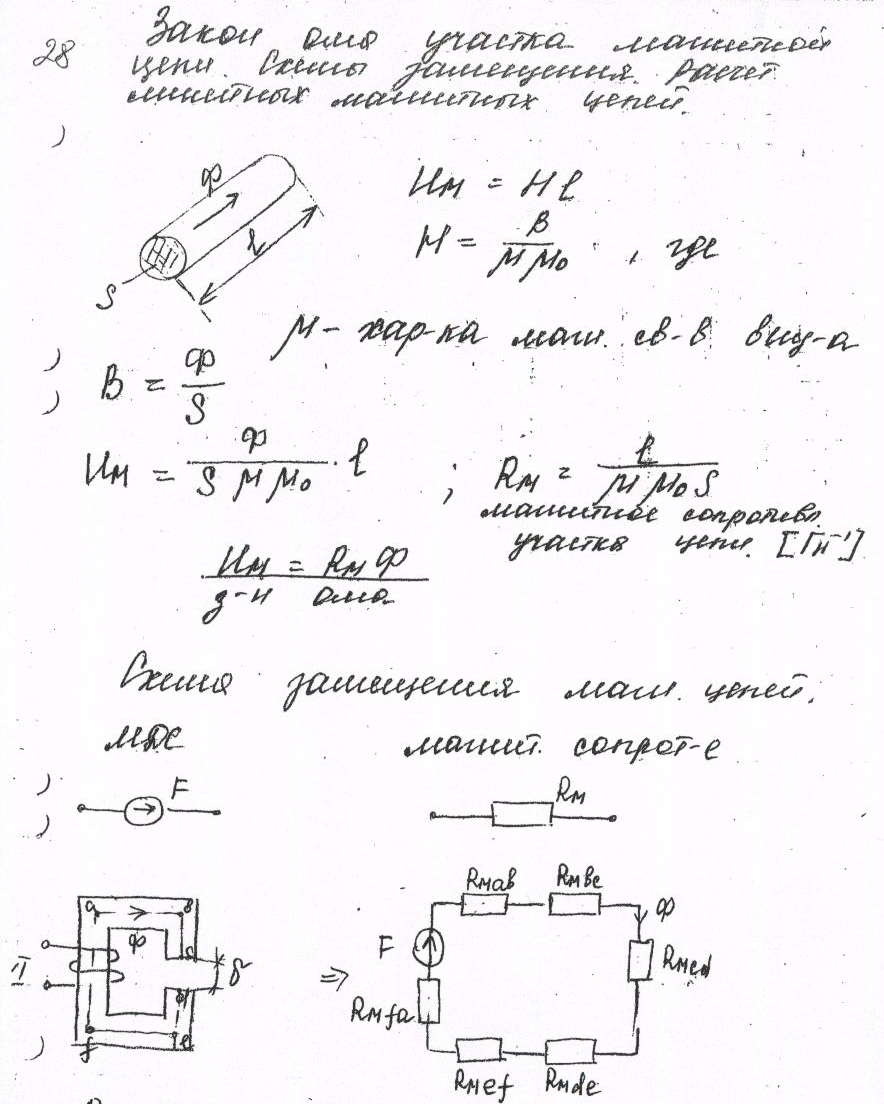 28
Закон ома участка магнитной
цепи. Схемы замещения. Расчет
линитных магнитных цепей.
Ф
l
S
Uм = Hl
H = B / μμ₀ , где
μ - хар-ка магн. св-в вещ-а
B = Ф / S
Uм = Ф / S μμ₀ · l ; Rм = l / μμ₀S
магнитное сопротивл.
участка цепи. [Гн⁻¹]
Uм = Rм Ф
з-н ома
Схема замещения магн. цепей.
МДС магнит. сопрот-е
F Rм
a в
Ф
c
I
δ
d
f e
⇒
Rмaв Rмвc
Ф
F
Rмcd
Rмfa
Rмef Rмde